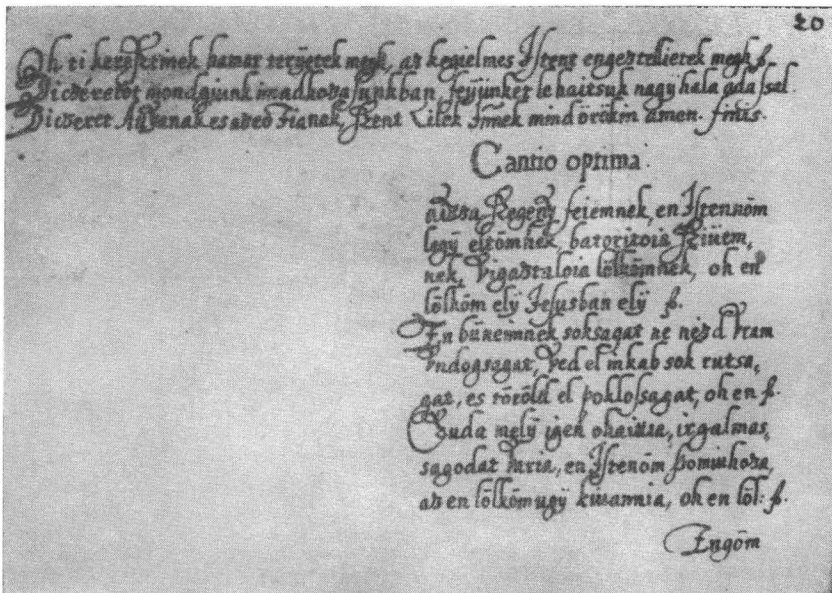 20
Oh ti kereſztinek hamar terÿetek megh, az kegielmes Iſtent engeztellietek megh ꝭ.
Diczéretöt mondgiunk imadkozaſunkban, feyünket le haitsuk nagÿ hala adaſsal.
Diczeret Atÿanak es az eö Fianak, ſzent Lilek Iſtnek mind örökin amen. finis.
Cantio optima.
Szegenÿ feiemnek, en Iſtennöm
legÿ eltömnek, batoritoia ſziüem,
nek, vigaztaloia lölkömnek, oh en
lölköm elÿ Jeſusban elÿ ꝭ.
En büneimnek soksagat ne nezd Vram
vndogsagat, Ved el inkab sok rutsa,
gat, es töröld el pokloſsagat, oh en ꝭ.
Cuda melÿ igen ohaitia, irgalmas,
sagodat, en Iſtenöm ſzomiuhoza,
az en lölköm ugÿ kiuannia, oh en löl: ꝭ.
Engöm